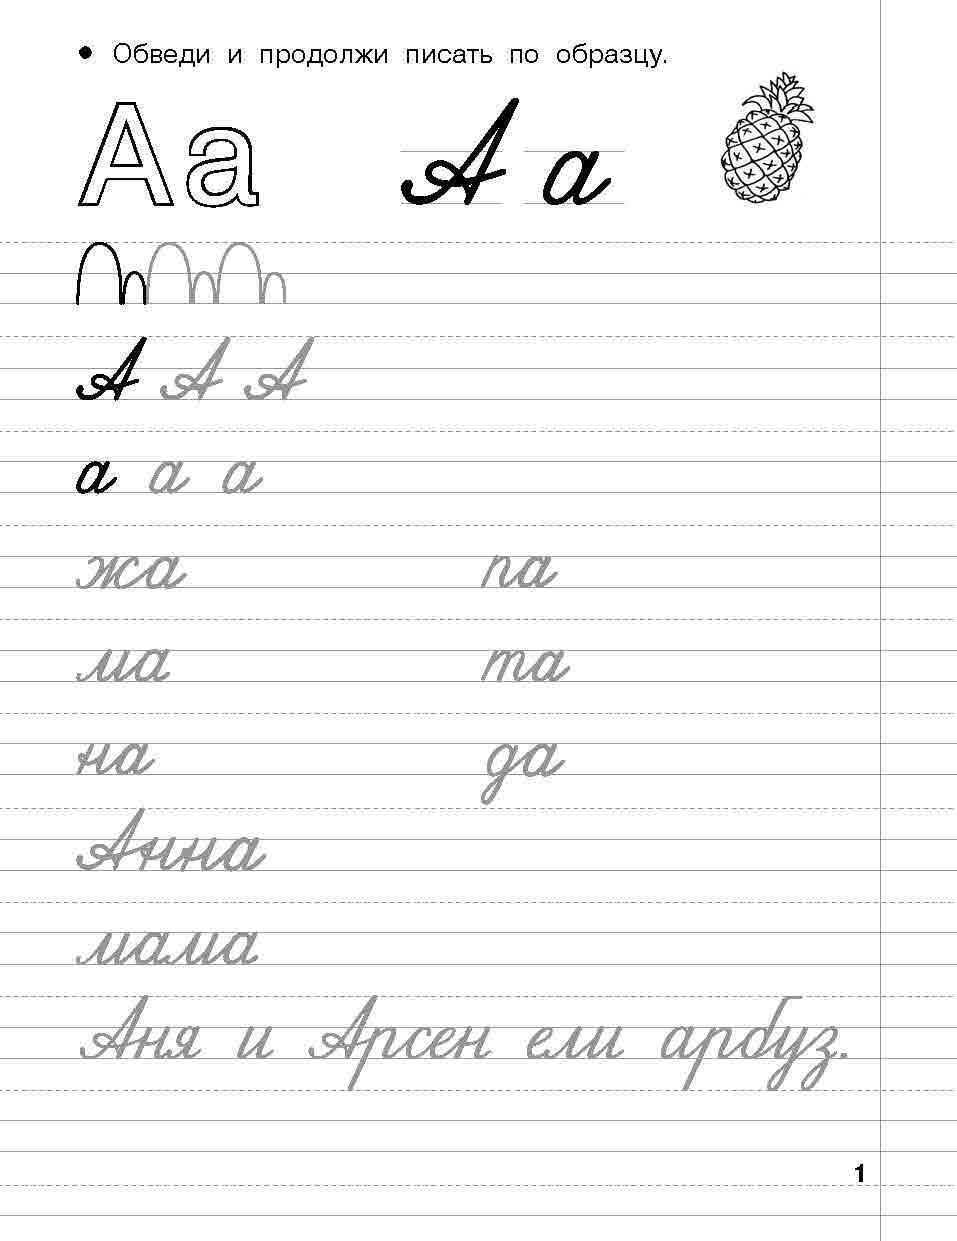 • Обведи и продолжи писать по образцу.
Аа А а
А А А
а а а
жа па
ма та
на да
Анна
мама
Аня и Арсен ели арбуз.
1